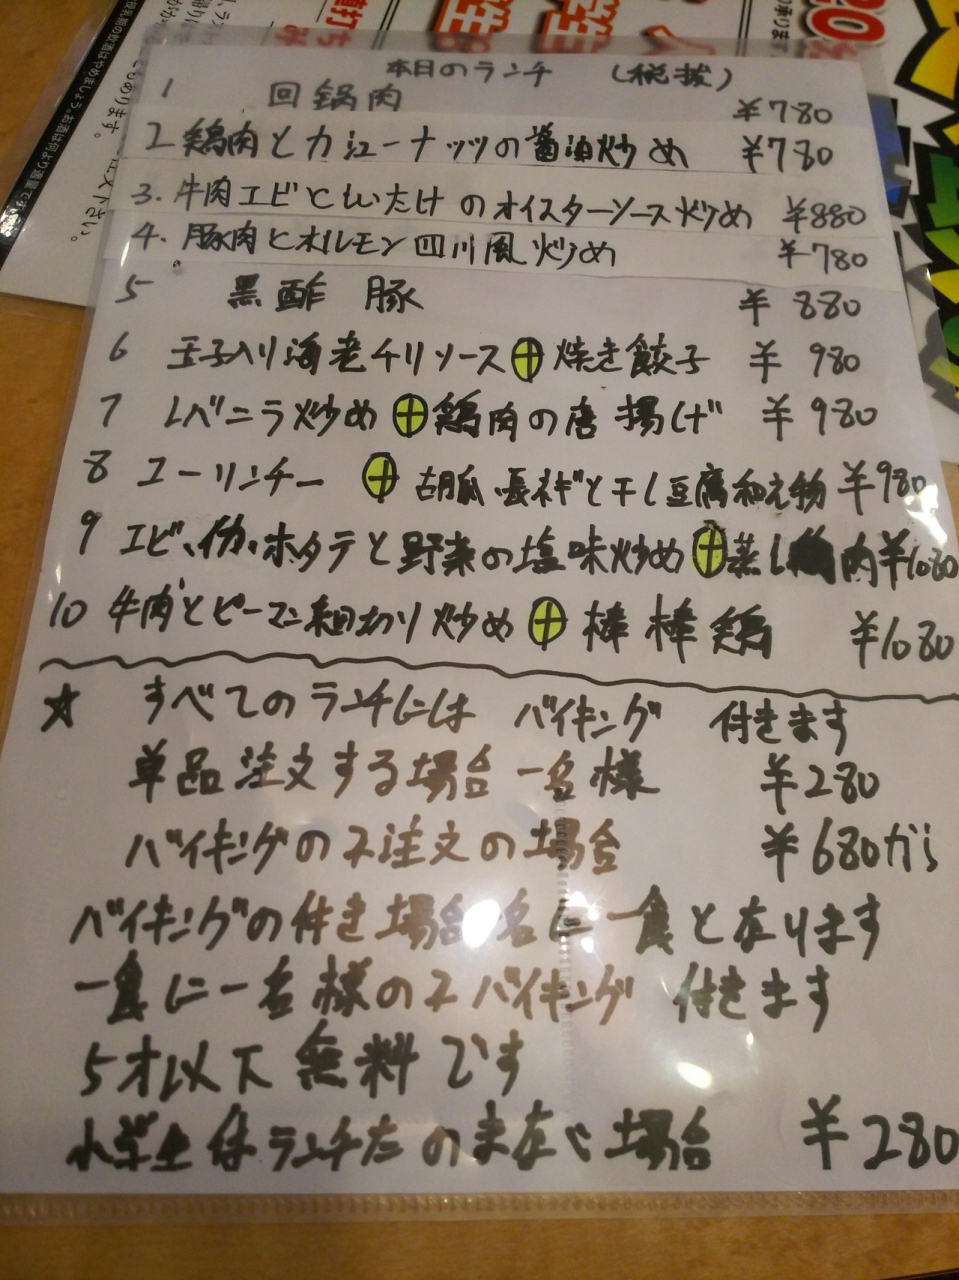 本日のランチ (税抜)
1 回鍋肉 ¥780
2 鶏肉とカシューナッツの醤油炒め ¥780
3. 牛肉エビとしいたけのオイスターソース炒め ¥880
4. 豚肉とオルモン四川風炒め ¥780
5 黒酢豚 ¥880
6 玉子入り海老チリソース⊕焼き餃子 ¥980
7 レバニラ炒め⊕鶏肉の唐揚げ ¥980
8 ユーリンチー ⊕ 胡瓜、長ネギと干し豆腐和え物 ¥980
9 エビ、イカ、ホタテと野菜の塩味炒め⊕蒸し鶏肉 ¥1080
10 牛肉とピーマン細切り炒め ⊕ 棒棒鶏 ¥1080
☆ すべてのランチには バイキング 付きます
単品注文する場合 一名様 ¥280
バイキングのみ注文の場合 ¥680から
バイキングの付き場合名に一食となります
一食に一名様のみバイキング 付きます
5才以下 無料です
小学生はランチたのまない場合 ¥280
ください。
あります。